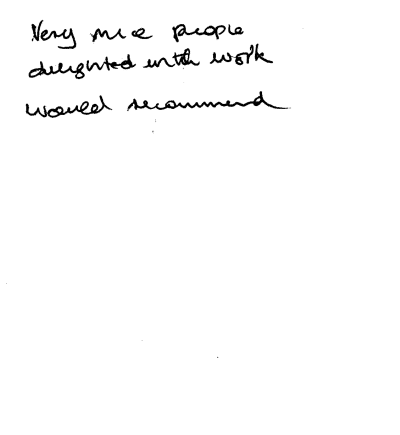 Very nice people
delighted with work
would recommend